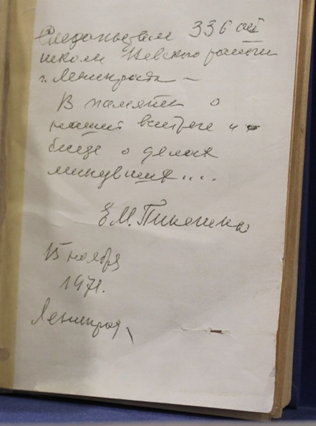 Следопытам 336 ой
школы Невского района
г. Ленинграда —
В память о
нашей встрече и
беседе о делах
минувших....
15 ноября
1971.
Ленинград